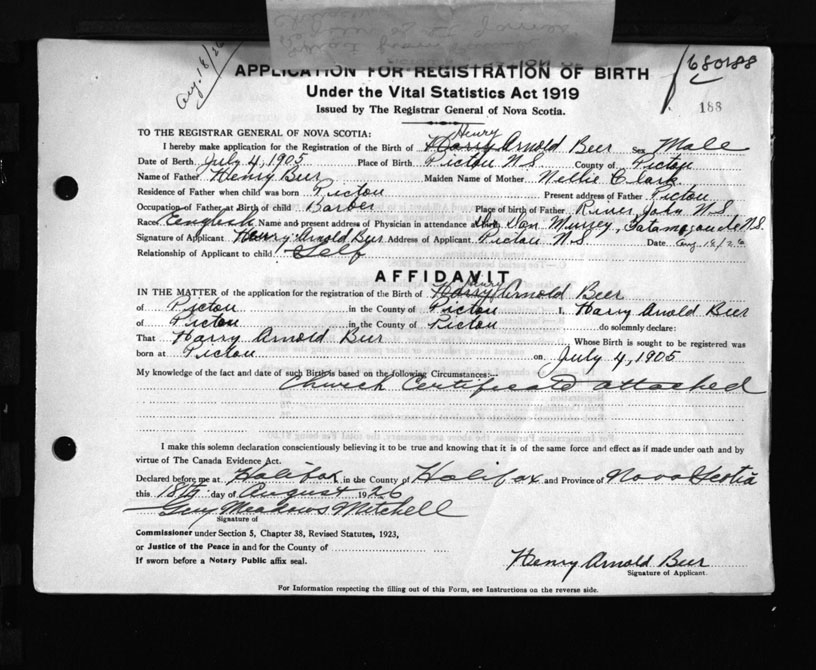 Aug. 18/26
680188
188
APPLICATION FOR REGISTRATION OF BIRTH
Under the Vital Statistics Act 1919
Issued by The Registrar General of Nova Scotia.
TO THE REGISTRAR GENERAL OF NOVA SCOTIA:
Henry
I hereby make application for the Registration of the Birth of Harry Arnold Beer Sex Male
Date of Birth July 4, 1905 Place of Birth Pictou N.S County of Pictou
Name of Father Henry Beer Maiden Name of Mother Nellie Clark
Residence of Father when child was born Pictou Present address of Father Pictou
Occupation of Father at Birth of child Barber Place of birth of Father River John N.S
Race English Name and present address of Physician in attendance at Dan Murray, Tatamagouche N.S.
Signature of Applicant Henry Arnold Beer Address of Applicant Pictou N.S. Date Aug. 18/26
Relationship of Applicant to child Self
AFFIDAVIT
Henry
IN THE MATTER of the application for the registration of the Birth of Harry Arnold Beer
of Pictou in the County of Pictou I, Harry Arnold Beer
of Pictou in the County of Pictou do solemnly declare:
That Harry Arnold Beer Whose Birth is sought to be registered was
born at Pictou on July 4, 1905
My knowledge of the fact and date of such Birth is based on the following Circumstances:—
Church Certificate attached
I make this solemn declaration conscientiously believing it to be true and knowing that it is of the same force and effect as if made under oath and by
virtue of The Canada Evidence Act.
Declared before me at Halifax in the County of Halifax and Province of Nova Scotia
this 18th day of August 1926
Guy Meadows Mitchell
Signature of
Commissioner under Section 5, Chapter 38, Revised Statutes, 1923,
or Justice of the Peace in and for the County of
If sworn before a Notary Public affix seal.
Henry Arnold Beer
Signature of Applicant.
For Information respecting the filling out of this Form, see Instructions on the reverse side.